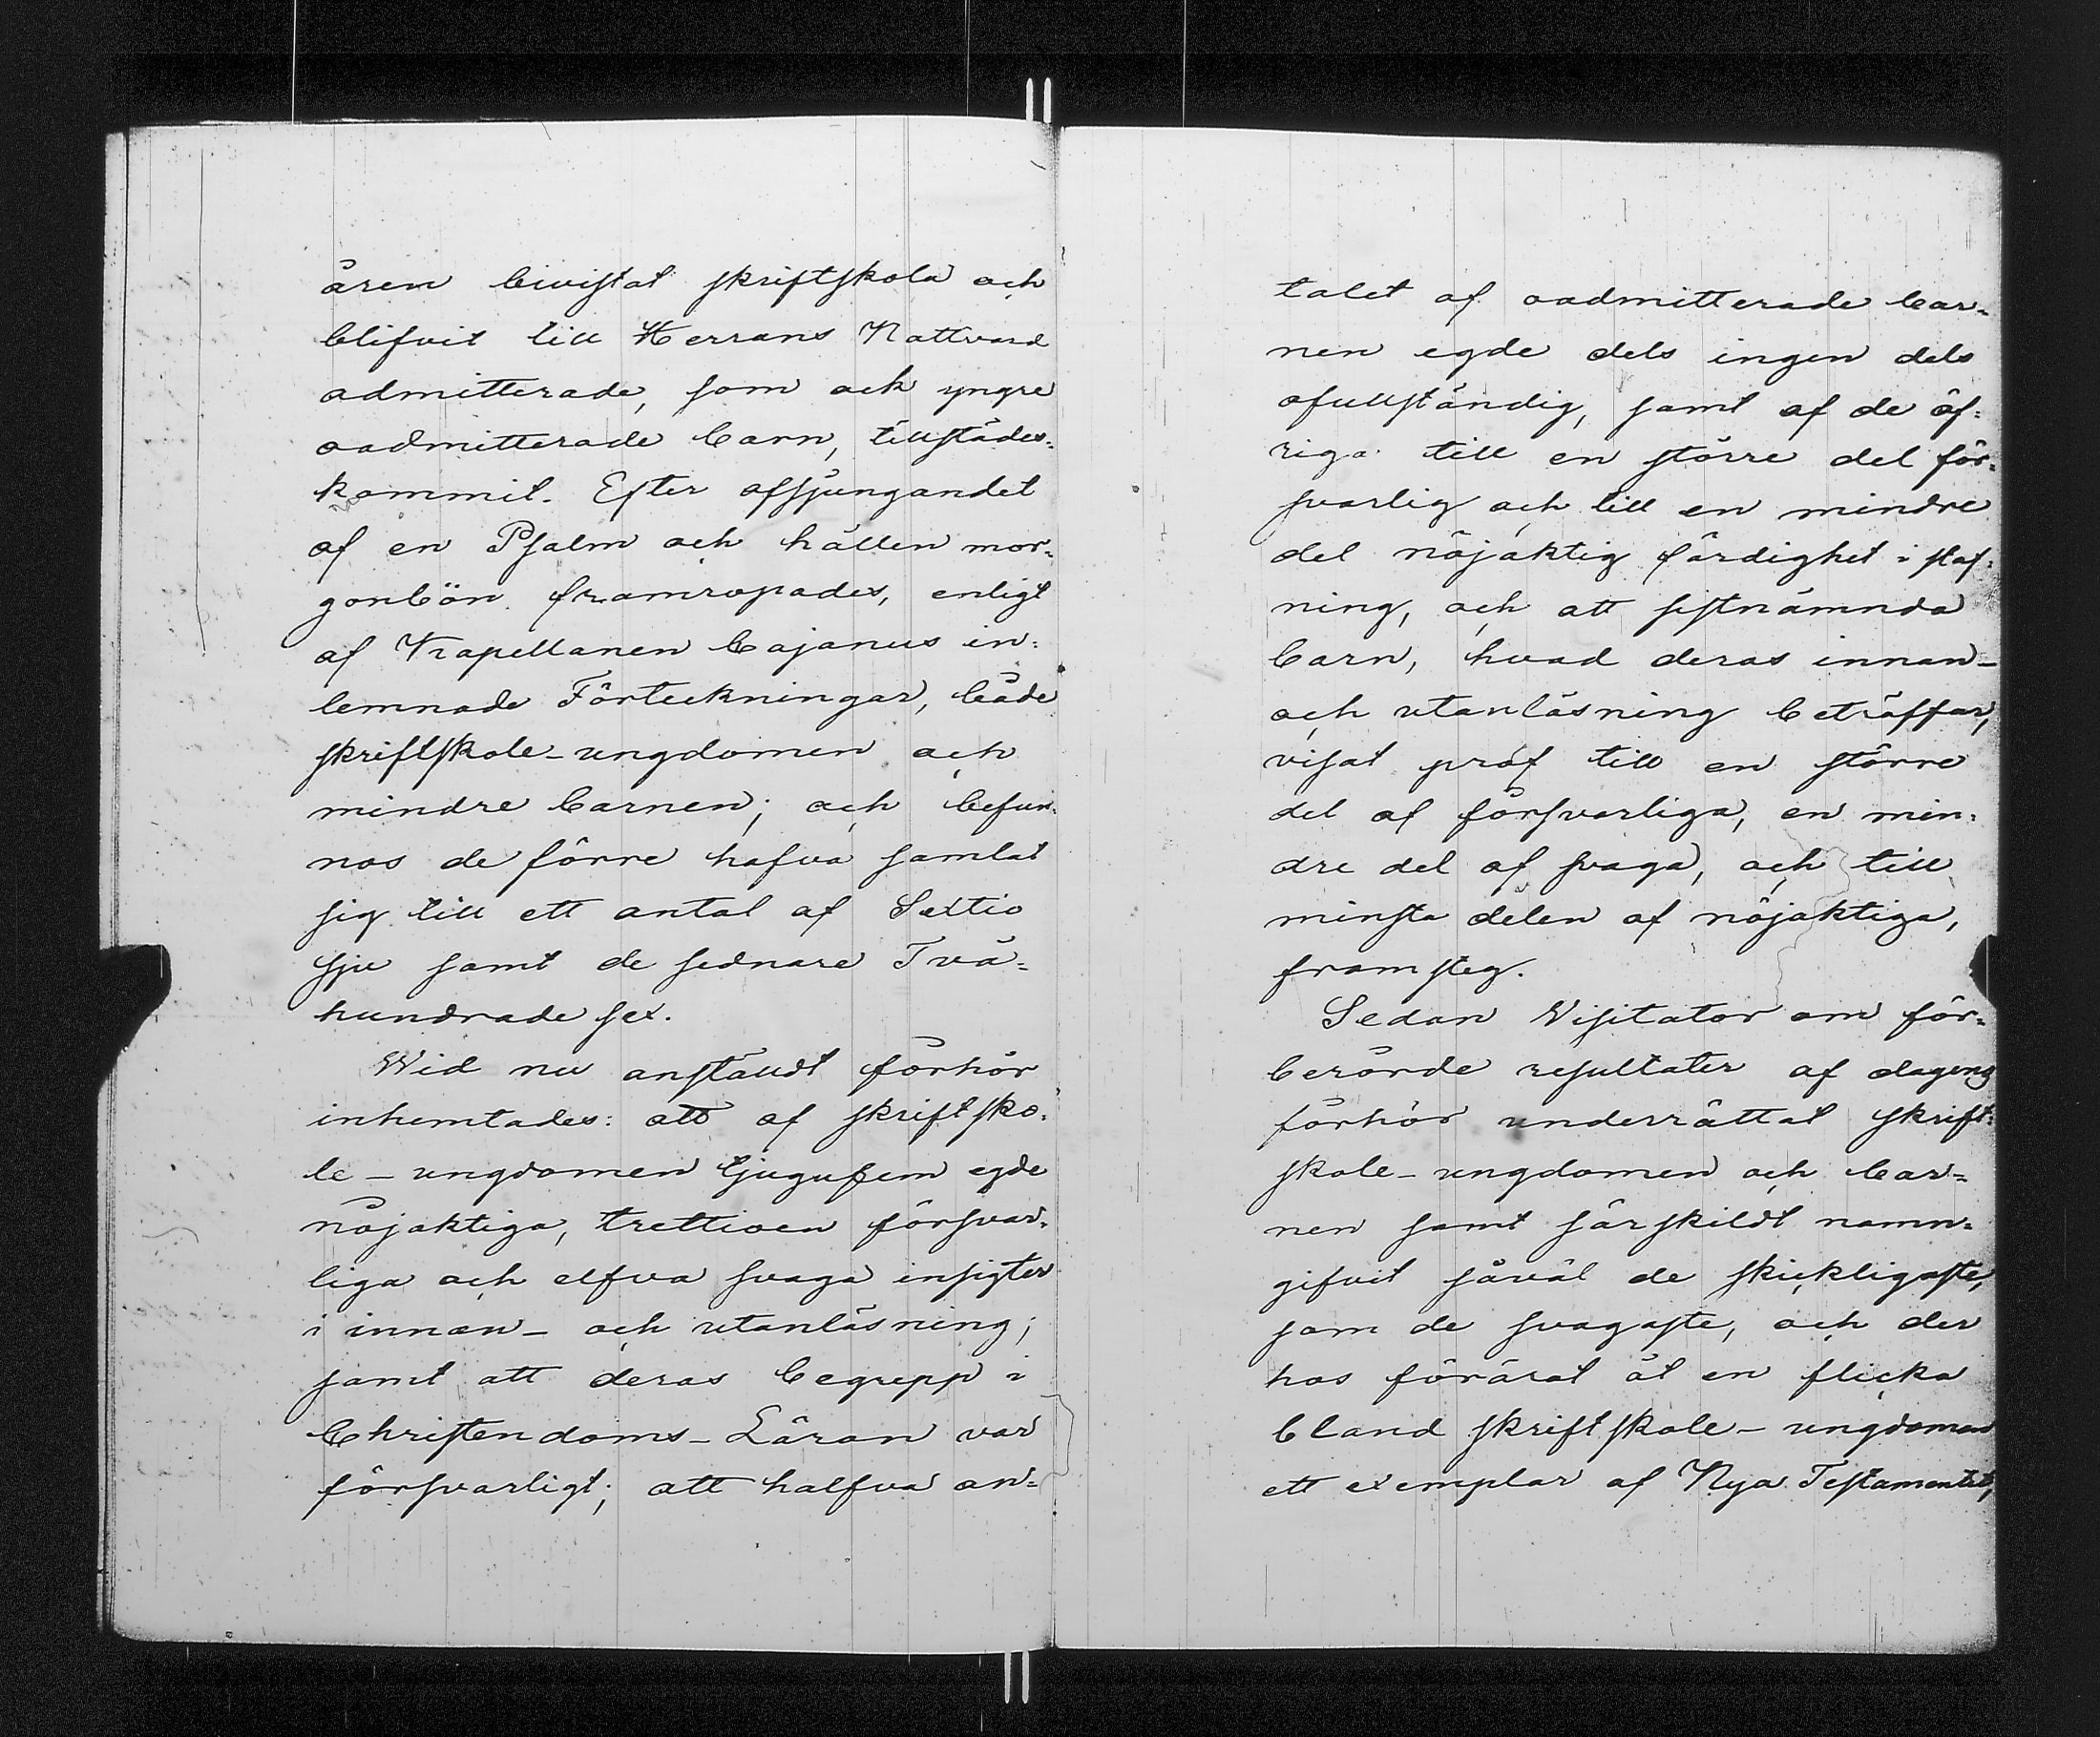 åren bivistat skriftskola och
blifvit till Herrans Nattvard
admitterade, som ock yngre
oadmitterade barn, tillstädes=
kommit. Efter afsjungandet
af en Psalm och hållen mor=
gonbön framropades, enligt
af Kapellanen Cajanus in=
lemnade Förteckningar, både
skriftskole-ungdomen och
mindre barnen; och befun=
nos de förre hafva samlat
sig till ett antal af Sextio
sju samt de sednare Två=
hundrade sex.
Wid nu anstäldt förhör
inhemtades: att af skriftsko=
le-ungdomen tjugufem egde
nöjaktiga, trettioen försvar=
liga och elfva svaga insigter
i innan- och utanläsning;
samt att deras begrepp i
Christendoms-Läran var
försvarligt; att halfva an=
talet af oadmitterade bar=
nen egde dels ingen dels
ofullständig, samt af de öf=
riga till en större del för=
svarlig och till en mindre
del nöjaktig färdighet i staf=
ning, och att sistnämnda
barn, hvad deras innan-
och utanläsning beträffar,
visat prof till en större
del af försvarliga, en min=
dre del af svaga, och till
minsta delen af nöjaktiga,
framsteg.
Sedan Visitator om för=
berörde resultater af dagens
förhör underrättat skrift=
skole-ungdomen och bar=
nen samt särskildt namn=
gifvit såväl de skickligaste,
som de svagaste, och der
hos förärat åt en flicka
bland skriftskole-ungdomen
ett exemplar af Nya Testamentet,